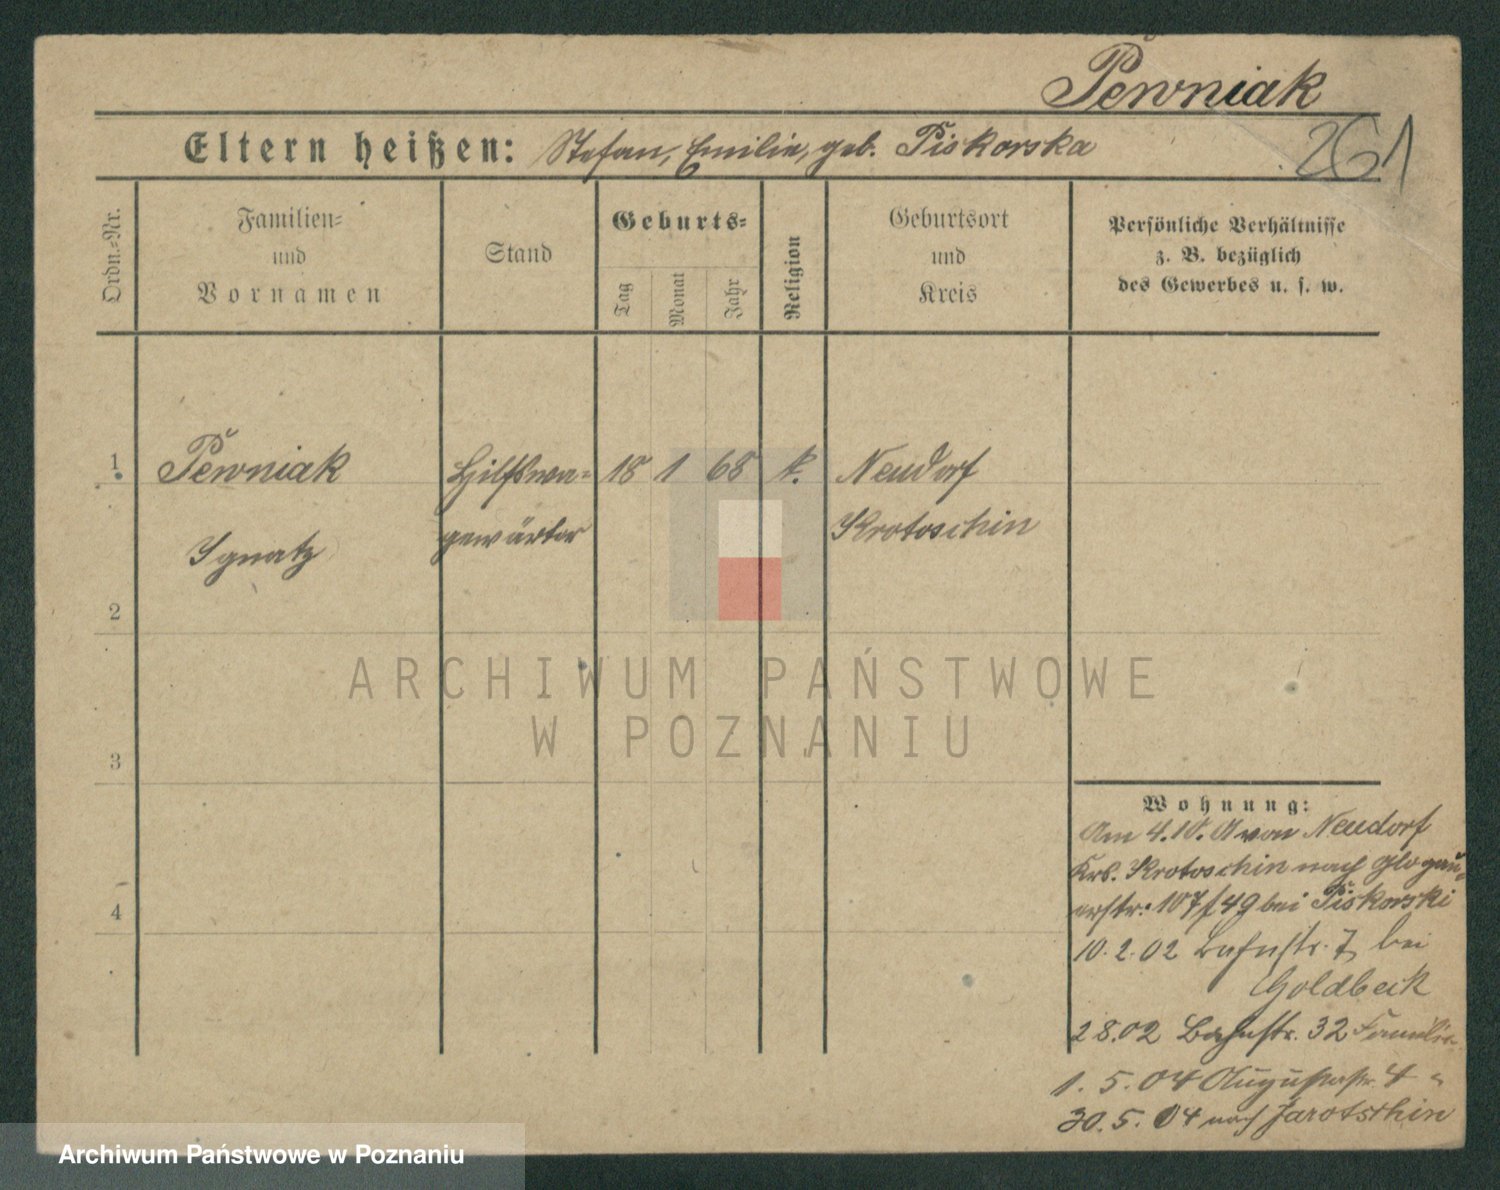 Pewniak
261
Eltern heißen: Stefan, Emilie, geb. Piskorska
Ordn.-Nr.
Familien-
und
Vornamen
Stand
Geburts-
Tag
Monat
Jahr
Religion
Geburtsort
und
Kreis
Persönliche Verhältnisse
z. B. bezüglich
des Gewerbes u. s. w.
1 Pewniak Hilfswa- 18 1 68 k. Neudorf
Ignatz gewärter Krotoschin
2
3
4
Wohnung:
Am 4.10. von Neudorf
Krs. Krotoschin nach Glogau-
erstr. 107/49 bei Piskorski
10.2.02 Bahnstr. 7 bei
Goldbeck
2 8.02 Bahnstr. 32 Familie
1. 5. 04 Augustastr. 4
30. 5. 04 nach Jarotschin
ARCHIWUM PAŃSTWOWE
W POZNANIU
Archiwum Państwowe w Poznaniu